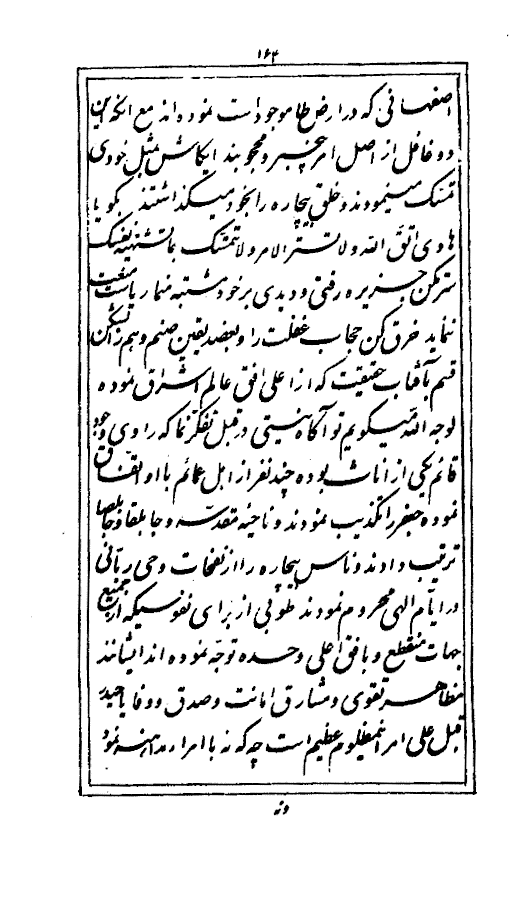 ۱۶۴
اصفهانی که در ارض طا موجود است نموده‌اند مع آنکه این
دو غافل از اصل امر بیخبر و محجوبند ایکاش بمثل خودی
تمسّک مینمودند و خلق بیچاره را بخود میگذاشتند بگو یا
هادی اتّق اللّه و لا تستر الامر و لا تتمسّک بما تشتهیه نفسک
ستر مکن جزیره رفتی و دیدی بر خود مشتبه منما ریاست منعت
ننماید خرق کن حجاب غفلت را و بعضد یقین صنم وهم را بشکن
قسم بآفتاب حقیقت که از اعلی افق عالم اشراق نموده
لوجه اللّه میگویم تو آگاه نیستی در قبل تفکّر نما که راوی وجود
قائم یکی از اناث بوده چند نفر از اهل عمائم با او اتّفاق
نموده جعفر را تکذیب نمودند و ناحیه مقدّسه و جابلقا و جابلصا
ترتیب دادند و ناس بیچاره را از نفحات وحی ربّانی
در ایّام الهی محروم نمودند طوبی از برای نفوسیکه از جمیع
جهات منقطع و بافق اعلی وحده توجّه نموده‌اند ایشانند
مظاهر تقوی و مشارق امانت و صدق و وفا یا حیدر
قبل علی امر اینمظلوم عظیم است چه که نه با امرا مداهنه نمود
ونه